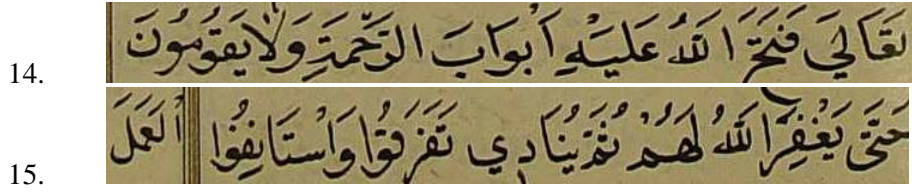 14. تعَالَي فَتَحَ اَللهُ عَلَيْهِ اَبْوَابَ الرَّحْمَةِ وَلَا يَقُوْمُوْنَ
15. حَتَّى يَغْفِرَ اللهُ لَهُمْ ثُمَّ يُنَادِي تَفَرَّقُوْا وَاسْتَانِفُوْا الْعَمَلَ